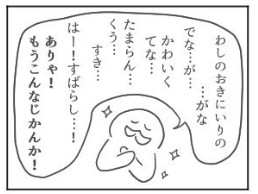 わしのおきにいりの
…がな
でな…が…
かわいく
てな…
たまらん…
くぅ…
すき…
はー！すばらし…！
ありゃ！
もうこんなじかんか！